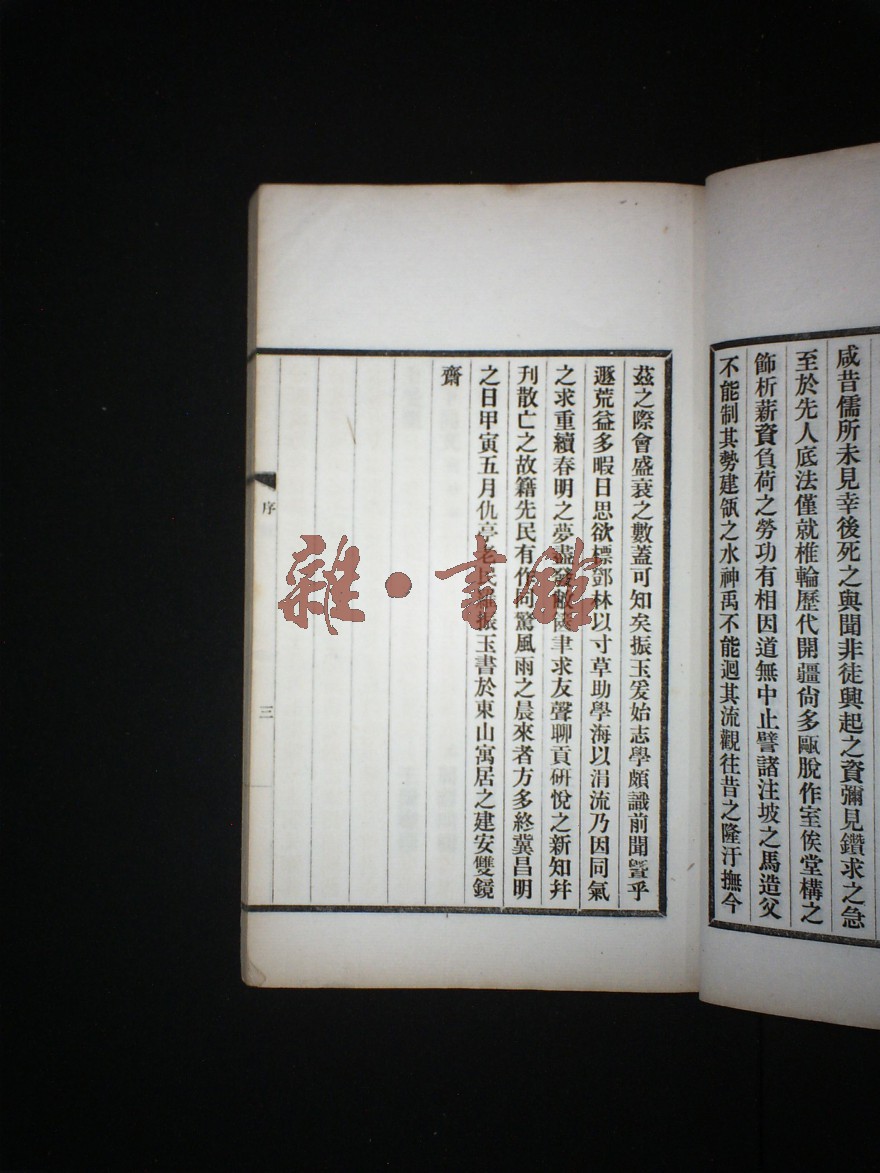 咸昔儒所未見幸後死之與聞非徒興起之資彌見鑽求之急
至於先人底法僅就椎輪歷代開疆尙多甌脫作室俟堂構之
飾析薪資負荷之勞功有相因道無中止譬諸注坡之馬造父
不能制其勢建瓴之水神禹不能迴其流觀往昔之隆汙撫今
茲之際會盛衰之數蓋可知矣振玉爰始志學頗識前聞曁乎
遯荒益多暇日思欲標鄧林以寸草助學海以涓流乃因同氣
之求重續春明之夢盡發敝篋聿求友聲聊貢硏悅之新知幷
刊散亡之故籍先民有作同驚風雨之晨來者方多終冀昌明
之日甲寅五月仇亭老民羅振玉書於東山寓居之建安雙鏡
齋
序
三
雜·書館